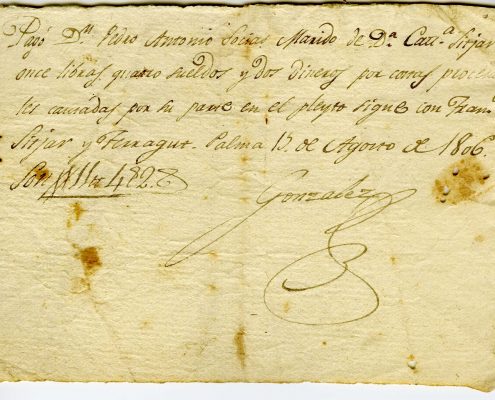 Pagó Dn. Pedro Antonio Socias Marido de Da. Catta. Sitjar
once libras quatro sueldos y dos dineros por costas proce
les causadas por su parte en el pleyto sigue con Fran
Sitjar y Ferragut. Palma 15 de Agosto de 1806
Son 11 4 2
Gonzalez